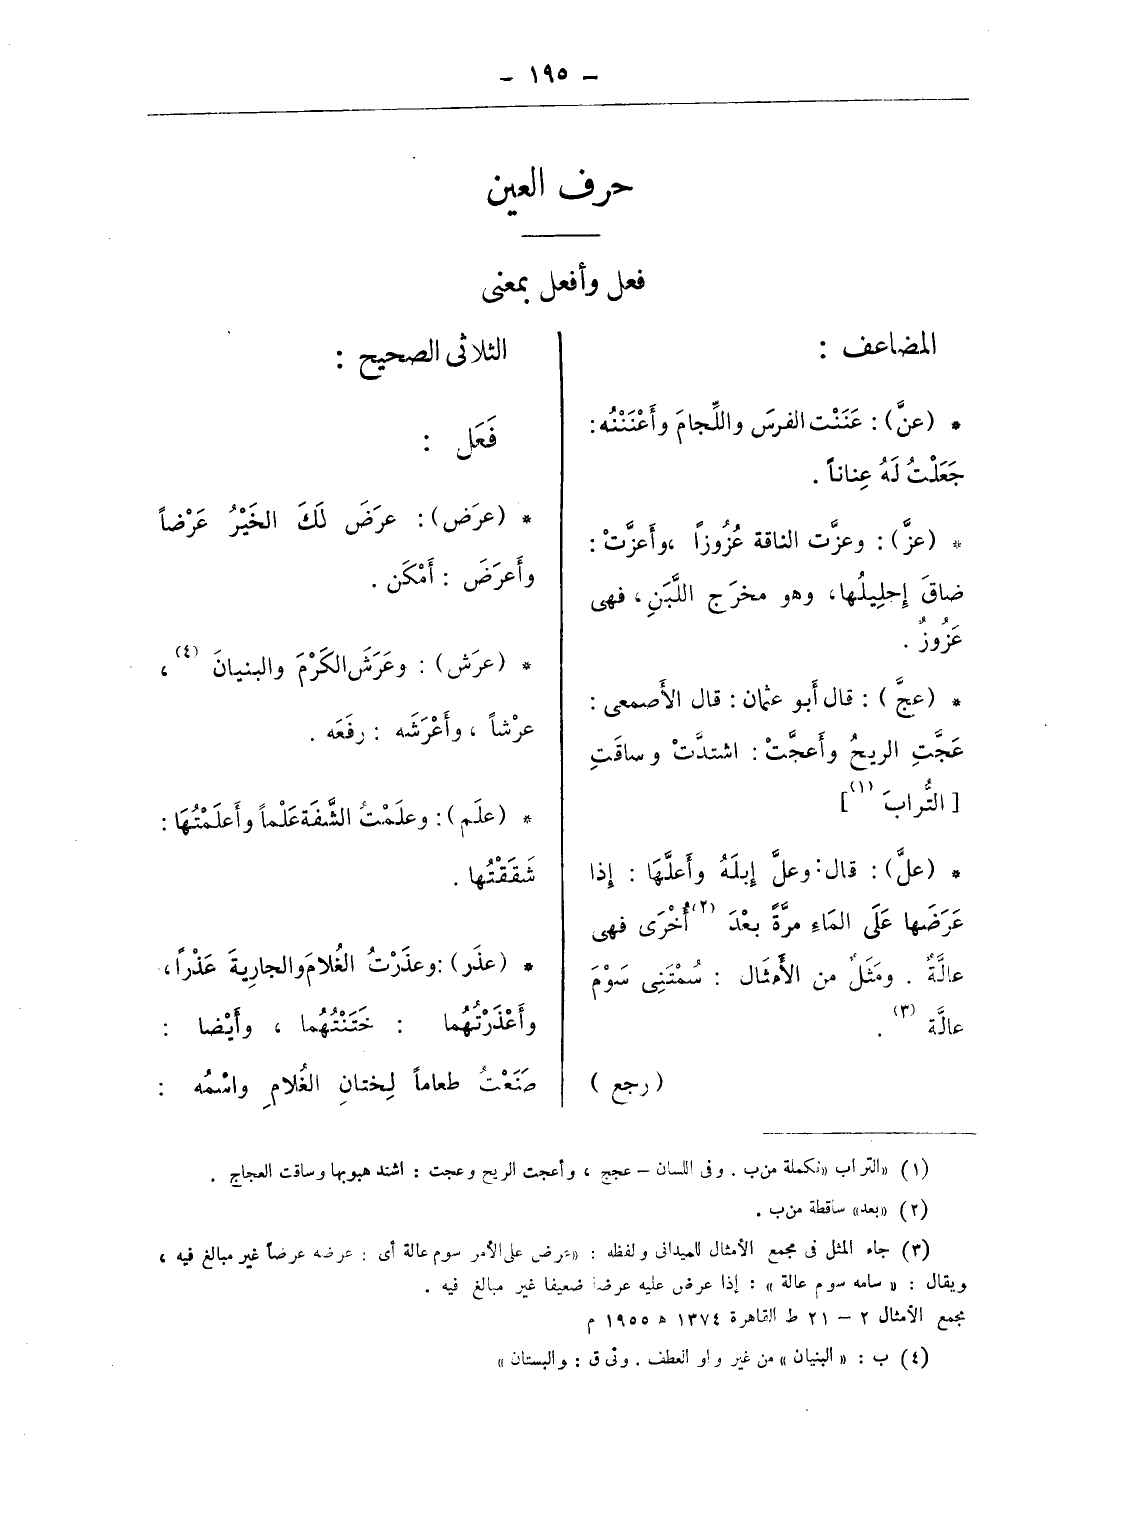 – ١٩٥ –
حرف العين
فعل وأفعل بمعنى
المضاعف :
* (عنَّ) : عَنَنْت الفرسَ واللِّجامَ وأَعْنَنْتُه :
جَعَلْتُ لَهُ عِناناً .
* (عزَّ) : وعزَّت الناقة عُزُوزاً ، وأَعزَّتْ :
ضاقَ إِحلِيلُها، وهو مخرَج اللَّبَنِ ، فهى
عَزُوزٌ .
* (عجَّ) : قال أَبو عثمان : قال الأَصمعى :
عَجَّتِ الريحُ وأَعجَّتْ : اشتدَّتْ وساقَتِ
[ التُّرابَ (١)]
* (علَّ) : قال : وعلَّ إِبلَهُ وأَعلَّهَا : إِذا
عَرَضَها عَلَى المَاءِ مرَّةً بعْدَ (٢) أُخْرَى فهى
عالَّةٌ . ومَثَلٌ من الأَمثَال : سُمْتَنِى سَوْمَ
عالَّة (٣) .
( رجع )
الثلاثى الصحيح :
فَعَل :
* (عرَض) : عرَضَ لَكَ الخَيْرُ عَرْضاً
وأَعرَضَ : أَمْكَن .
* (عرَش) : وعَرَشَ الكَرْمَ والبنيانَ (٤) ،
عرْشاً ، وأَعْرَشَه : رفَعَه .
* (علَم) : وعلَمْتُ الشَّفَةَ عَلْماً وأَعلَمْتُهَا :
شَقَقْتُها .
* (عذَر) : وعذَرْتُ الغُلامَ والجارِيةَ عَذْراً،
وأَعْذَرْتُهُما : خَتَنْتُهُما ، وأَيْضا :
صَنَعْتُ طعاماً لِختانِ الغُلامِ واسْمُه :
(١) «التراب» تكملة من ب . وفى اللسان – عجج ، وأعجت الريح وعجت : اشتد هبوبها وساقت العجاج .
(٢) «بعد» ساقطة من ب .
(٣) جاء المثل فى مجمع الأمثال للميدانى ولفظه : «عرض على الأمر سوم عالة أى : عرضه عرضاً غير مبالغ فيه ،
ويقال : « سامه سوم عالة » : إذا عرض عليه عرضا ضعيفا غير مبالغ فيه .
مجمع الأمثال ٢ – ٢١ ط القاهرة ١٣٧٤ ه ١٩٥٥ م
(٤) ب : « البنيان » من غير واو العطف . وفى ق : والبستان »